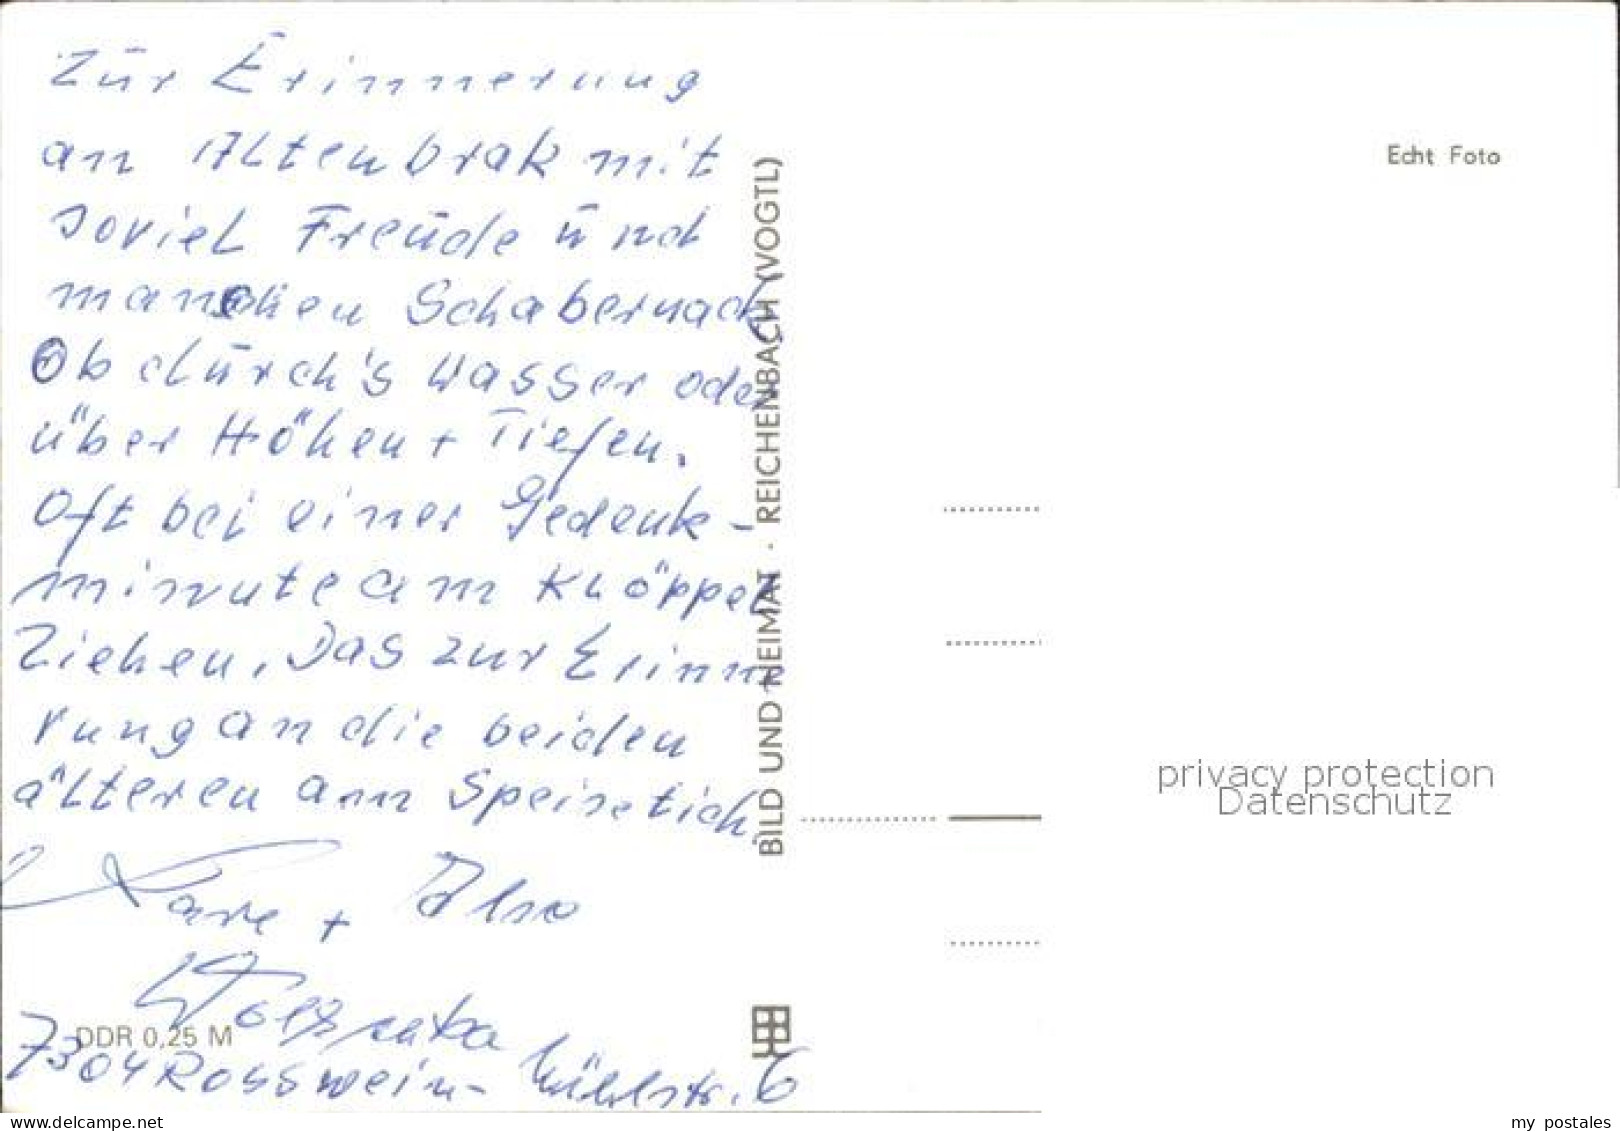 Zur Erinnerung
an Altenbrak mit
soviel Freude und
manchen Schabernack
Ob durch's Wasser oder
über Höhen + Tiefen.
Oft bei einer Gedenk-
minute am Knöppel
Ziehen. Das zur Erinne
rung an die beiden
älteren am Speisetich.
+
7304 Rosswein- Mühlstr. 6
DDR 0,25 M
BILD UND HEIMAT · REICHENBACH (VOGTL)
Echt Foto
privacy protection
Datenschutz
www.delcampe.net
my_postales